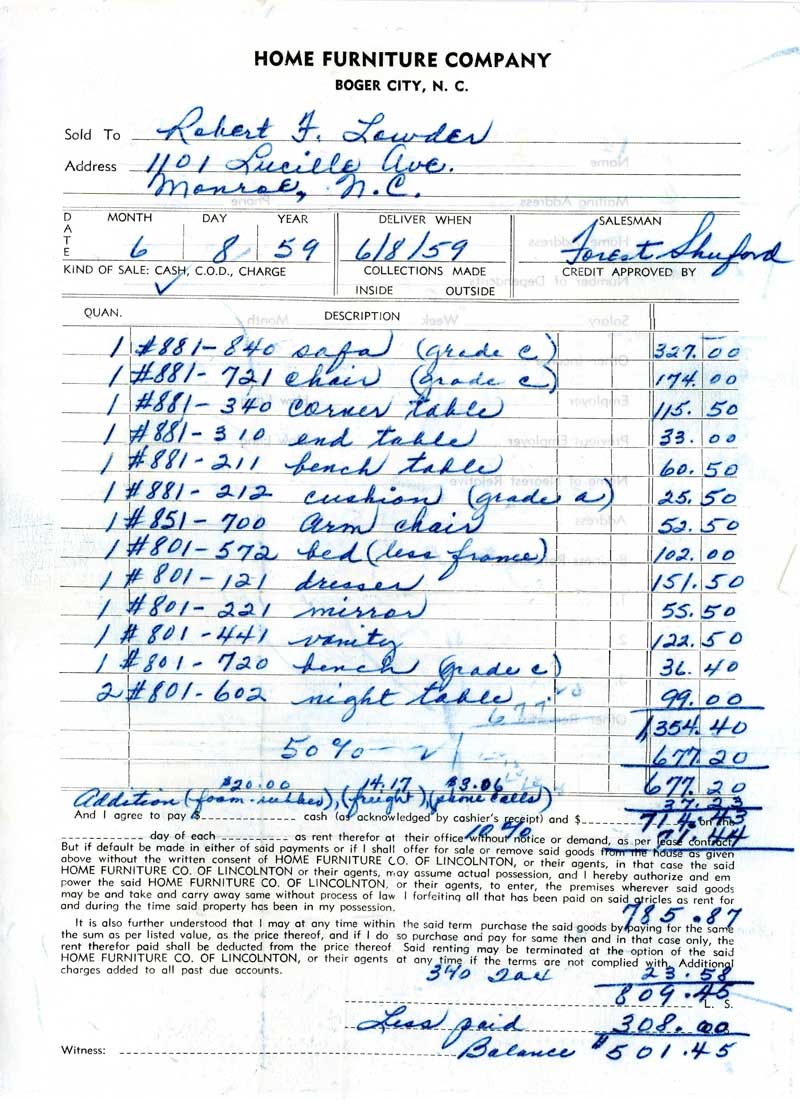 HOME FURNITURE COMPANY
BOGER CITY, N. C.
Sold To Robert F. Lowder
Address 1101 Lucille Ave.
Monroe, N.C.
DATE MONTH DAY YEAR DELIVER WHEN SALESMAN
6 8 59 6/8/59 Forest Shuford
KIND OF SALE: CASH, C.O.D., CHARGE COLLECTIONS MADE CREDIT APPROVED BY
✓ INSIDE OUTSIDE
QUAN. DESCRIPTION
1 #881-840 sofa (grade c) 327.00
1 #881-721 chair (grade c) 174.00
1 #881-340 corner table 115.50
1 #881-310 end table 33.00
1 #881-211 bench table 60.50
1 #881-212 cushion (grade a) 25.50
1 #851-700 arm chair 52.50
1 #801-572 bed (less frame) 102.00
1 #801-121 dresser 151.50
1 #801-221 mirror 55.50
1 #801-441 vanity 122.50
1 #801-720 bench (grade c) 36.40
2 #801-602 night table 99.00
1,354.40
50% 677.20
$20.00 14.17 $3.06 677.20
Addition (foam-rubber), (freight), (phone calls) 37.23
And I agree to pay $ cash (as acknowledged by cashier's receipt) and $ 714.43 on the
day of each as rent therefor at their office without notice or demand, as per lease contract
10% 71.44
But if default be made in either of said payments or if I shall offer for sale or remove said goods from the house as given
above without the written consent of HOME FURNITURE CO. OF LINCOLNTON, or their agents, in that case the said
HOME FURNITURE CO. OF LINCOLNTON or their agents, may assume actual possession, and I hereby authorize and em
power the said HOME FURNITURE CO. OF LINCOLNTON, or their agents, to enter, the premises wherever said goods
may be and take and carry away same without process of law I forfeiting all that has been paid on said atricles as rent for
and during the time said property has been in my possession.
785.87
It is also further understood that I may at any time within the said term purchase the said goods by paying for the same
the sum as per listed value, as the price thereof, and if I do so purchase and pay for same then and in that case only, the
rent therefor paid shall be deducted from the price thereof. Said renting may be terminated at the option of the said
HOME FURNITURE CO. OF LINCOLNTON, or their agents at any time if the terms are not complied with. Additional
charges added to all past due accounts.
3% Tax 23.58
809.45 L. S.
Less paid 308.00
Witness: Balance $501.45